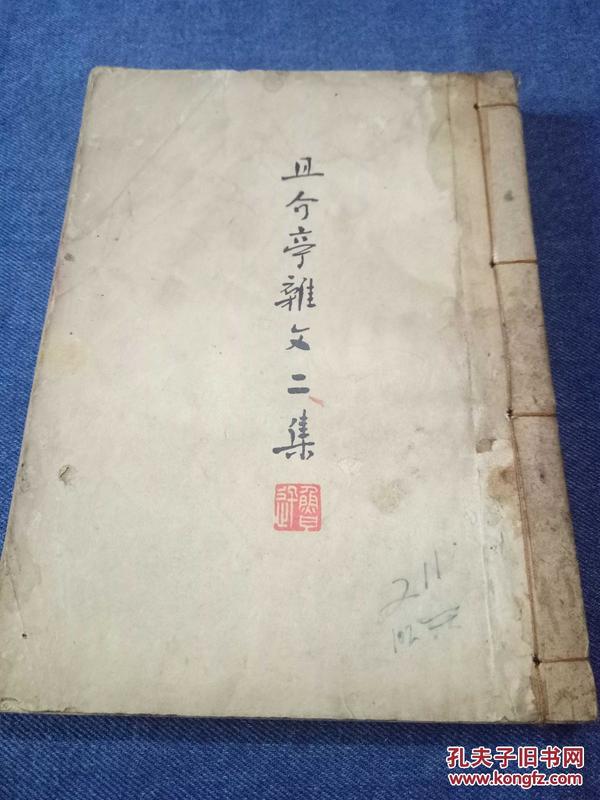 且介亭雜文二集
魯迅
211
孔夫子旧书网
www.kongfz.com